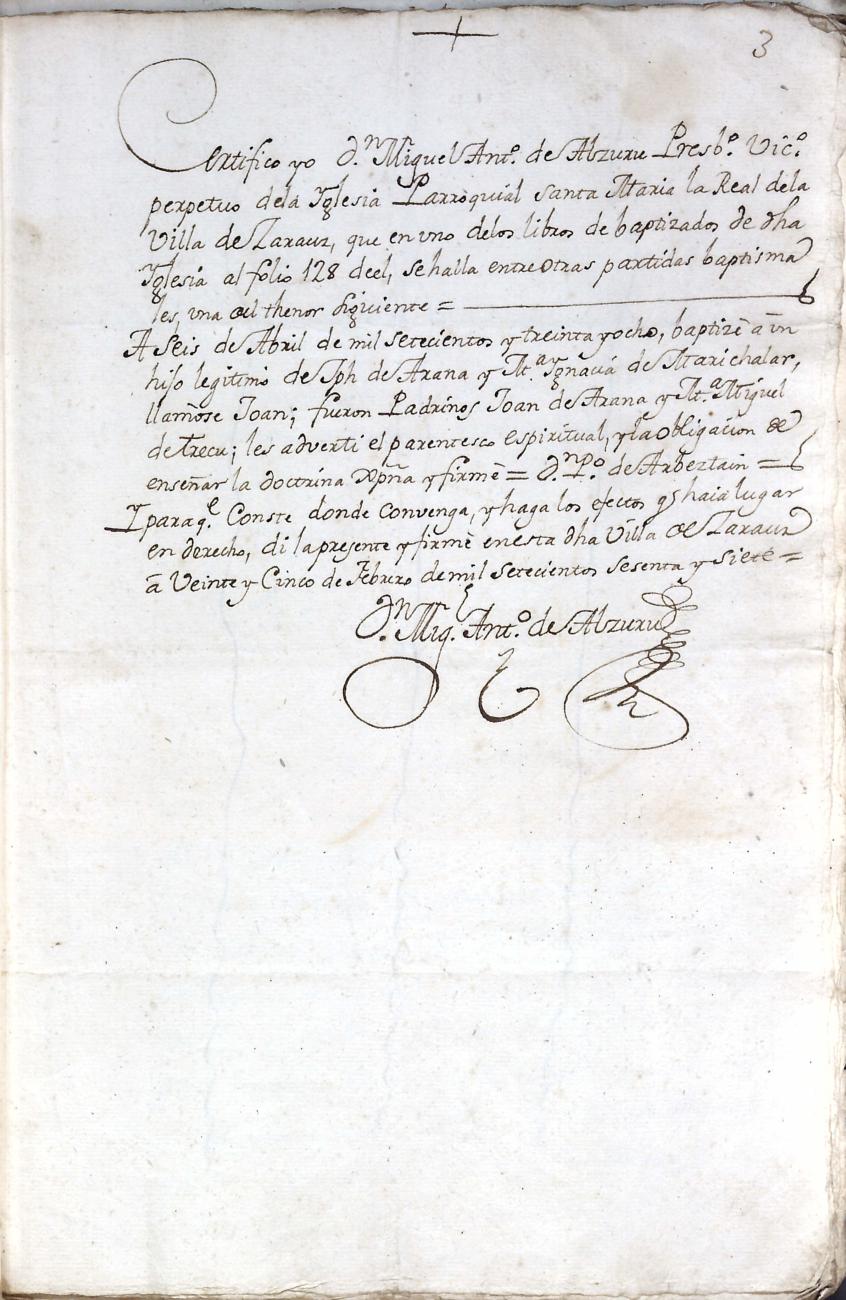 3
Certifico yo D.n Miguel Ant.o de Alzuru Presb.o Vic.o
perpetuo dela Yglesia Parroquial Santa Maria la Real dela
Villa de Zarauz, que en vno delos libros de baptizados de dha
Yglesia al folio 128 deel, sehalla entre otras partidas baptisma
les, vna del thenor siguiente =
A seis de Abril de mil setecientos y treinta y ocho, baptizè à vn
hijo legitimo de Jph de Arana y M.a Ygnacia de Marichalar,
llamose Joan; fueron Padrinos Joan de Arana y M.a Miguel
de Trecu; les adverti el parentesco espiritual, y la obligacion de
enseñar la doctrina Xpña y firmè = D.n P.o de Arbeztain =
Y paraq.e Conste donde convenga, y haga los efectos q haia lugar
en derecho, di la presente y firmè en esta dha Villa de Zarauz
à Veinte y Cinco de Febrero de mil setecientos sesenta y siete =
D.n Mig.l Ant.o de Alzuru